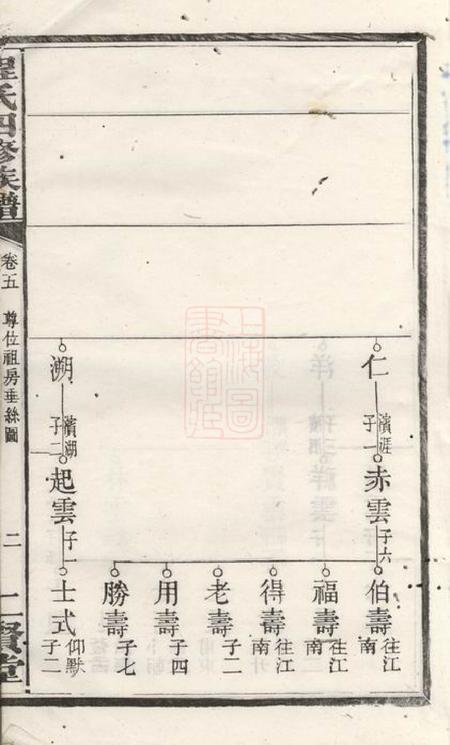 程氏四修族譜
卷五
尊位祖房垂絲圖
二
二賢堂
仁
濱涯
子一
赤雲
子六
伯壽
往江南
福壽
往江南
得壽
往江南
老壽
子二
用壽
子四
勝壽
子七
溯
濱湖
子二
起雲
子一
士式
仰默
子二
上海圖書館藏